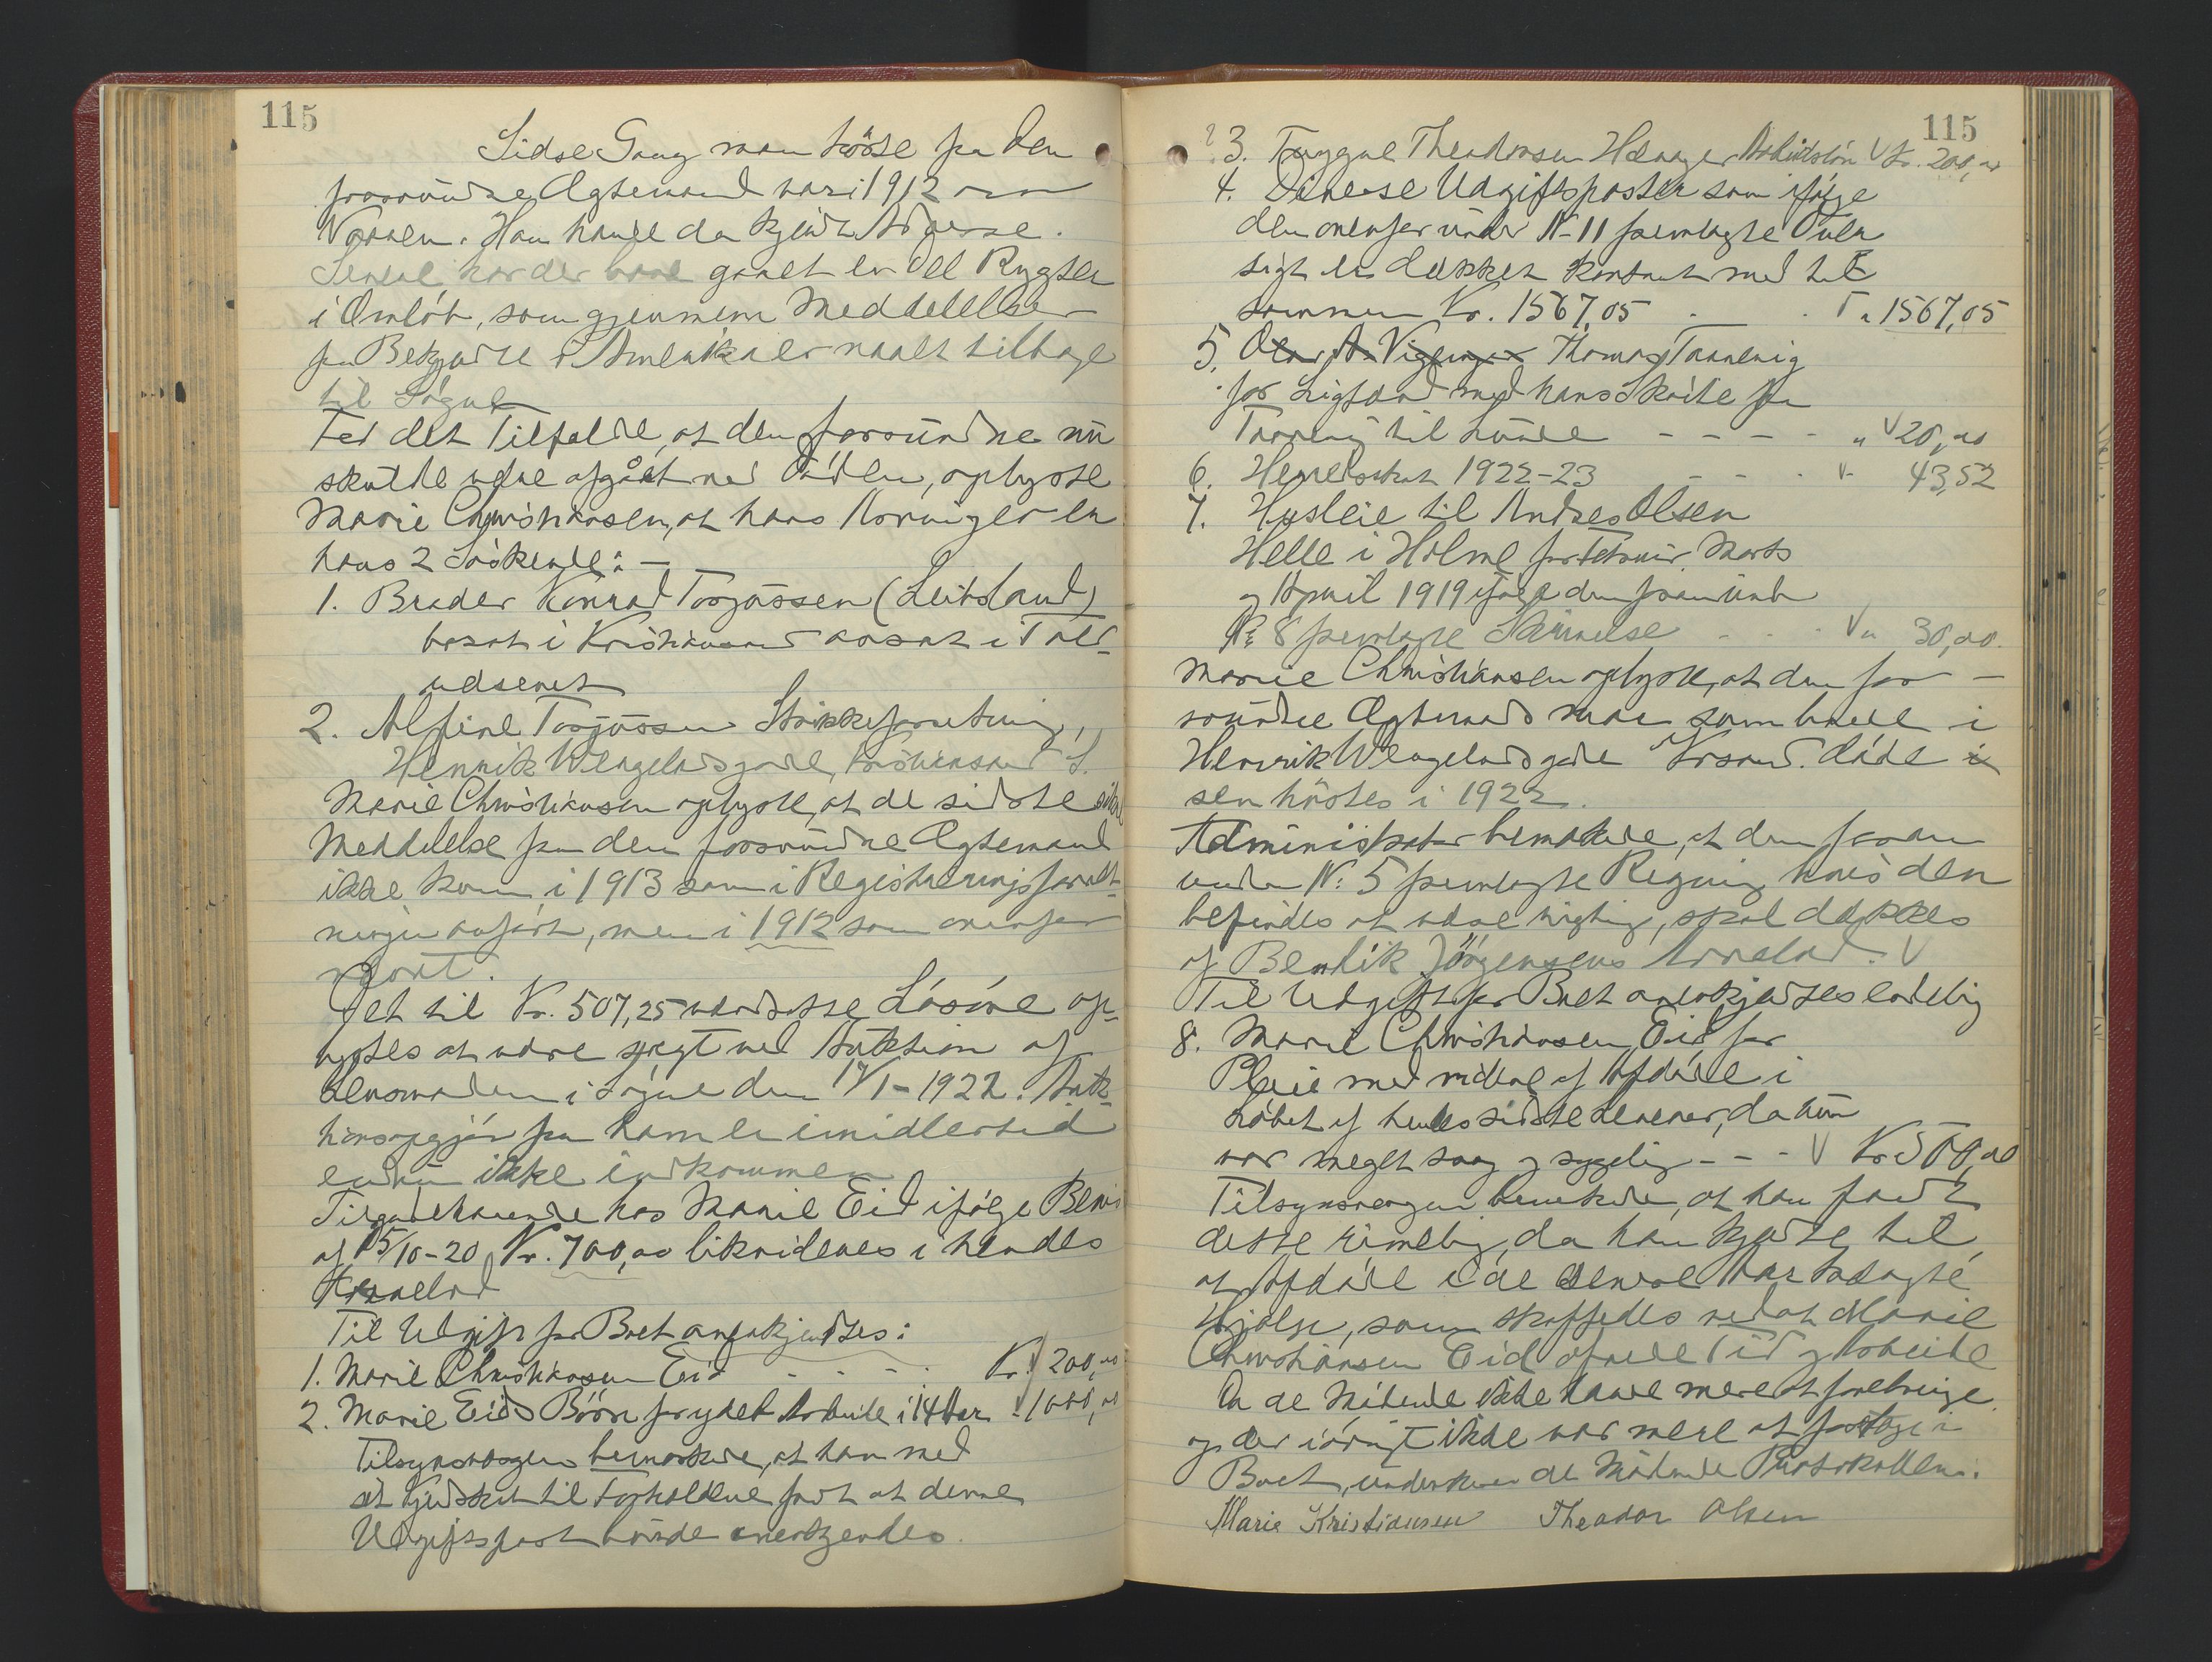 115
Sidse Gang man hørte fra den
forsvundne Ægtemand var i 1912 om
Vaaren. Han havde da kjendt Adresse.
Senere har der gaaet en Del Rygter
i Omløb, som gjennem Meddelelser
fra Bekjendte i Amerika er naaet tilbage
til Søgne
For det Tilfælde, at den forsvundne nu
skulde være afgået ved Døden, oplyste
Marie Christiansen, at hans Arvinger er
hans 2 Søskende: —
1. Broder Konrad Torjussen (Leitsland)
bosat i Kristiansand
2. Alfine Torjussen Strikkeforretning,
Henrik Wergelandsgade, Kristiansand S.
Marie Christiansen oplyste, at de sidste
Meddelelse fra den forsvundne Ægtemand
ikke kom i 1913 som i Registreringsforret-
ningen anført, men i 1912 som ovenfor
Det til Kr. 507,25 vurderte Løsøre op-
lystes at være solgt ved Auktion af
Lensmanden i Søgne den 1922. Auk-
tionsopgjør fra ham er imidlertid
endnu ikke indkommen
Tilgodehavende hos Marie Eid ifølge Bevis
af 15/10-20 Kr. 700,00 likvideres i hendes
Arvelod
Til Udgift for Boet anerkjendtes:
1. Marie Christiansen Eid - - - Kr. 200,00
2. Marie Eids Børn for ydet Arbeide i 14 Aar - 1000,00
Tilsynsværgen bemærkede, at han med
sit Kjendskab til Forholdene fandt at denne
Udgiftspost burde anerkjendes.
115
3. Trygve Theodorsen Arbeidsløn Kr. 200,00
4. Diverse Udgiftsposter som ifølge
den ovenfor under N 11 fremlagte Over
sigt er dækket kontant med til
sammen Kr. 1567,05 - - " 1567,05
5. Thomas Traanevig
for Ligfærd med hans Skøite fra
til - - - - " 20,00
6. Herredsskat 1922-23 - - - 43,52
7. Husleie til Andreas Olsen
Helle i Holme for Februar, Marts
og April 1919 ifølge den foran und
N: 8 fremlagte Skrivelse - - - " 30,00.
Marie Christiansen oplyste, at den for-
svundne Ægtemands Mor som boede i
Henrik Wergelandsgade Krsand. døde i
sen høstes i 1922.
Administrator bemærkede, at den foran
under N: 5 fremlagte Regning hvis den
befindes at være rigtig, skal dækkes
af Bendik Jørgensens Arvelod.
Til Udgift for Boet anerkjendtes endelig
8. Marie Christiansen Eid for
Pleie med av Afdøde i
Løbet af hendes sidste Leveaar, da hun
var meget svag og sygelig - - - Kr 500,00
Tilsynsværgen bemærkede, at han fandt
dette rimelig, da han kjendte til,
at Afdøde i de senere Aar
Hjælp, som skaffedes ved at Marie
Christiansen Eid ofrede Tid og Arbeide
Da de Mødende ikke havde mere at frembringe
og der iøvrigt ikke var mere at foretage i
Boet, underskrev de Mødende Protokollen.
Marie Kristiansen Theodor Olsen